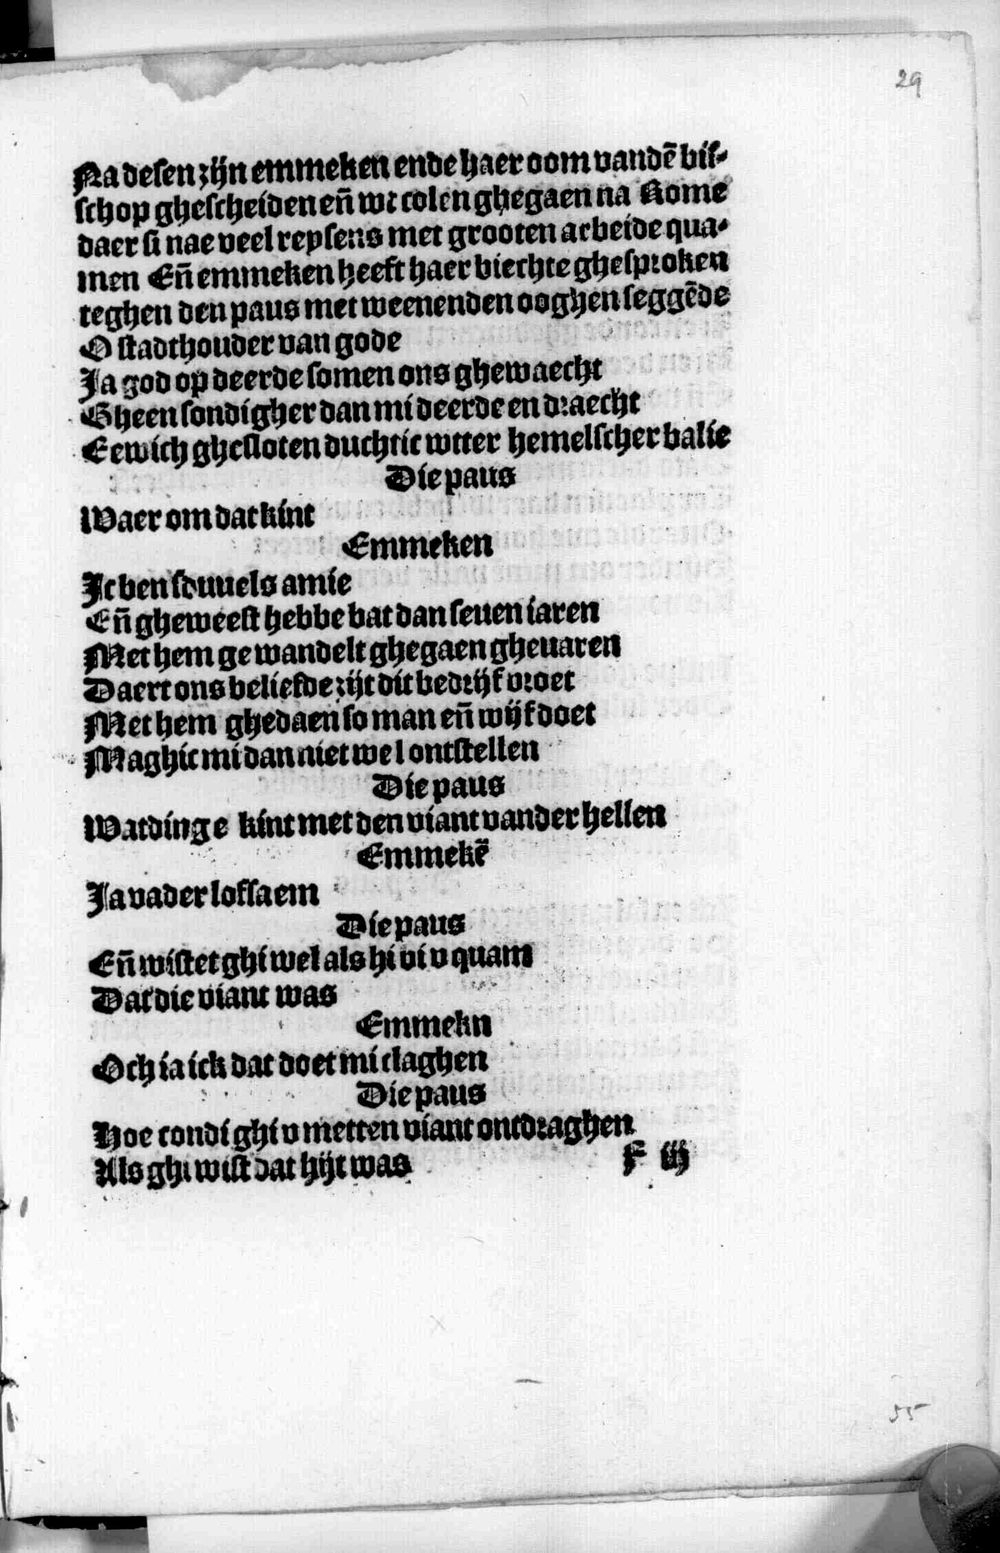 29
Na desen zijn emmeken ende haer oom vandē bis-
schop ghescheiden en̄ wt colen ghegaen na Rome
daer si nae veel reysens met grooten arbeide qua-
men En̄ emmeken heeft haer biechte ghesproken
teghen den paus met weenenden ooghen seggēde
O stadthouder van gode
Ja god op deerde somen ons ghewaecht
Gheen sondigher dan mi deerde en draecht
Eewich ghesloten duchtic wtter hemelscher balie
Die paus
Waer om dat kint
Emmeken
Jc ben sduuels amie
En̄ gheweest hebbe bat dan seuen iaren
Met hem ge wandelt ghegaen gheuaren
Daert ons beliefde zijt dit bedrijf vroet
Met hem ghedaen so man en̄ wijf doet
Maghic mi dan niet wel ontstellen
Die paus
Wat dinge kint met den viant vander hellen
Emmekē
Ja vader lofsaem
Die paus
En̄ wistet ghi wel als hi bi v quam
Dat die viant was
Emmekn
Och ia ick dat doet mi claghen
Die paus
Hoe condi ghi v metten viant ontdraghen
Als ghi wist dat hijt was
F iij
55